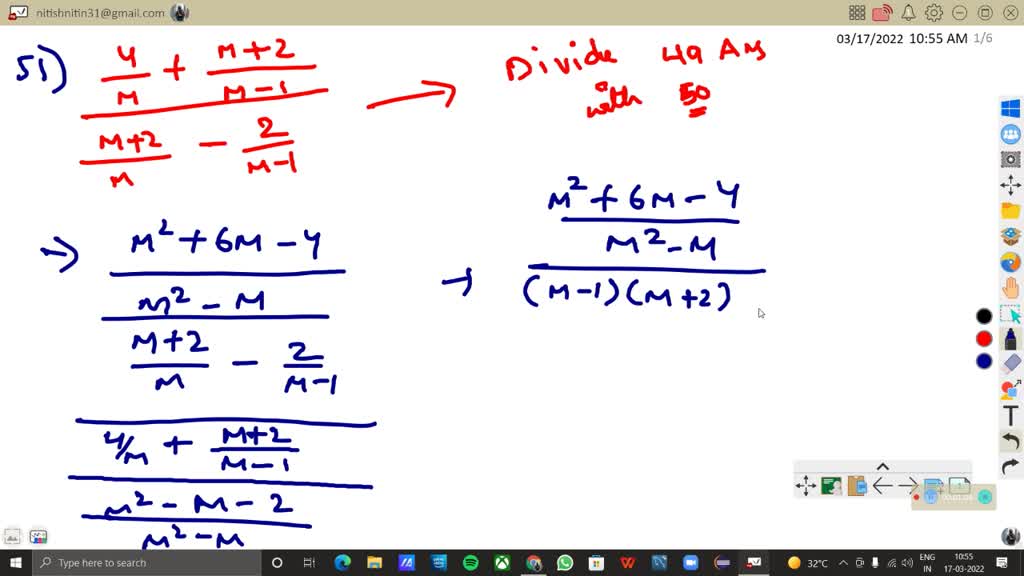 nitishnitin31@gmail.com
03/17/2022 10:55 AM 1/6
51) 4/M + M+2/M-1
M+2/M - 2/M-1
Divide 49 Ans
with 50
→ M² + 6M - 4
M² - M
M+2/M - 2/M-1
4/M + M+2/M-1
M² - M - 2
M² - M
→ M² + 6M - 4
M² - M
(M-1)(M+2)
T
1
00:01:08
Type here to search
32°C
ENG
IN
10:55
17-03-2022